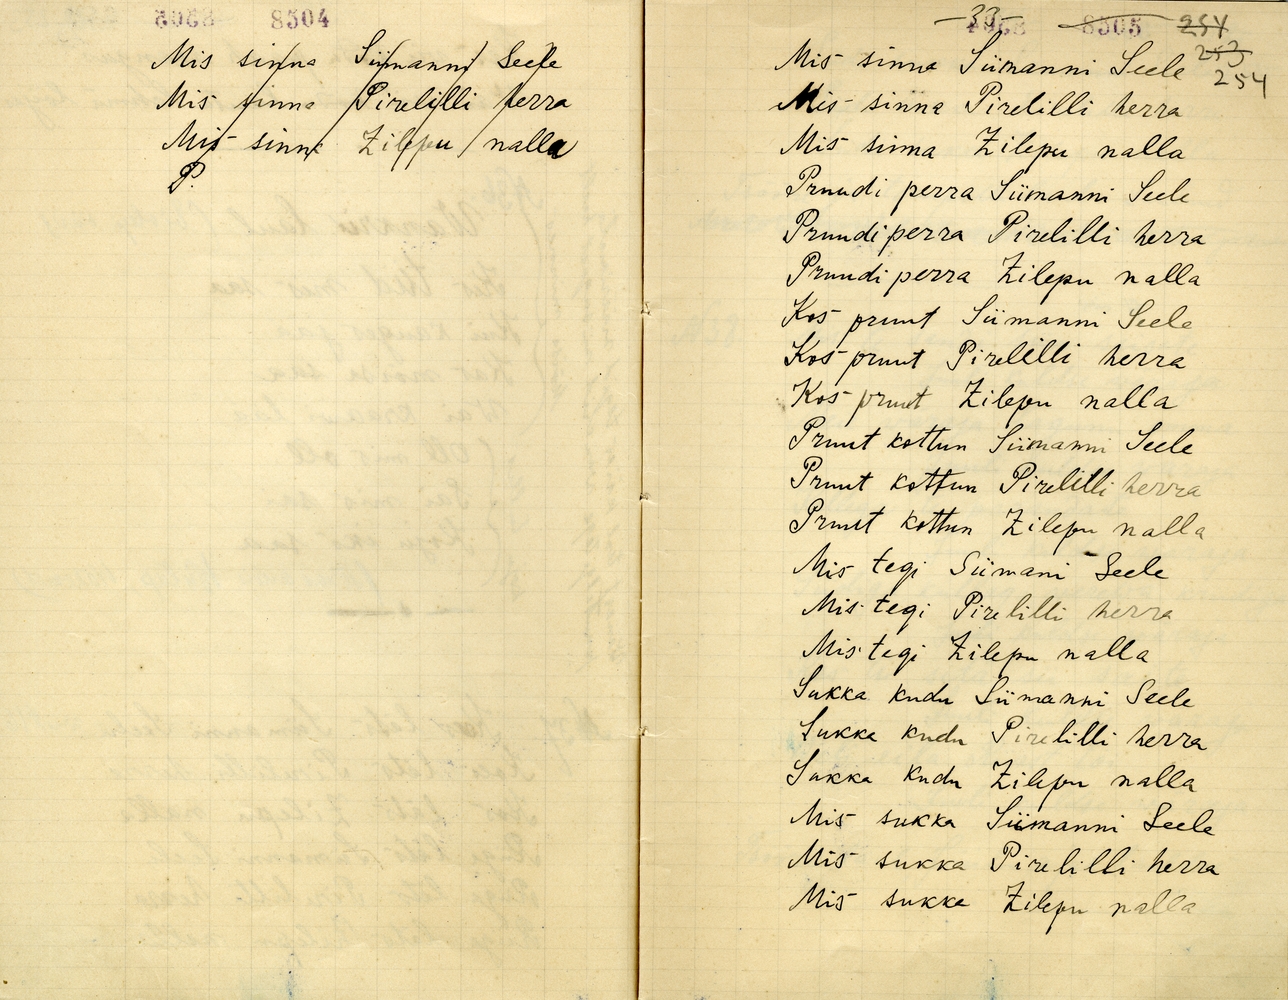 8504
Mis sinna Siimanni Seele
Mis sinna Pirelilli herra
Mis sinna Zilepu nalla
P.
-33-
8505
254
253
254
Mis sinna Siimanni Seele
Mis sinna Pirelilli herra
Mis sinna Zilepu nalla
Pruudi perra Siimanni Seele
Pruudi perra Pirelilli herra
Pruudi perra Zilepu nalla
Kos pruut Siimanni Seele
Kos pruut Pirelilli herra
Kos pruut Zilepu nalla
Pruut kottun Siimanni Seele
Pruut kottun Pirelilli herra
Pruut kottun Zilepu nalla
Mis tegi Siimani Seele
Mis tegi Pirelilli herra
Mis tegi Zilepu nalla
Sukka kudu Siimanni Seele
Sukka kudu Pirelilli herra
Sukka kudu Zilepu nalla
Mis sukka Siimanni Seele
Mis sukka Pirelilli herra
Mis sukka Zilepu nalla